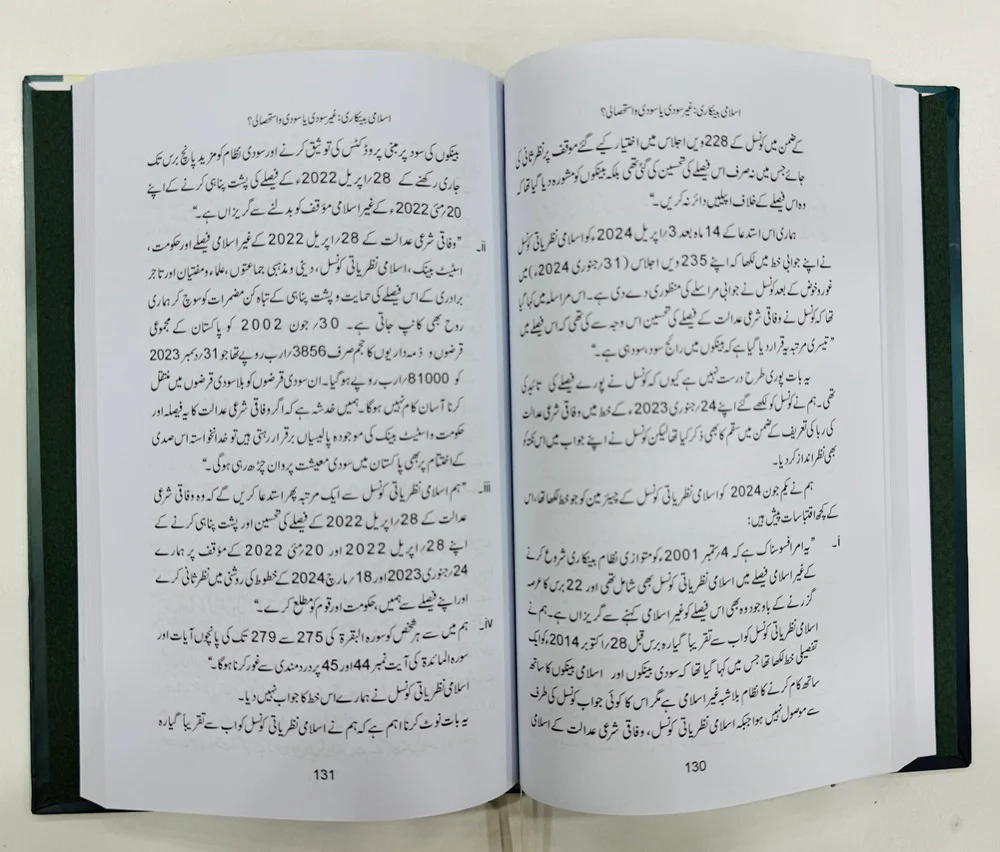 اسلامی بینکاری: غیر سودی یا سودی و استحصالی؟
کے ضمن میں کونسل کے 228 ویں اجلاس میں اختیار کیے گئے موقف پر نظر ثانی کی
جائے جس میں نہ صرف اس فیصلے کی تحسین کی گئی تھی بلکہ بینکوں کو مشورہ دیا گیا تھا کہ
وہ اس فیصلے کے خلاف اپیلیں دائر نہ کریں۔“
ہماری اس استدعا کے 14 ماہ بعد 3؍اپریل 2024ء کو اسلامی نظریاتی کونسل
نے اپنے جوابی خط میں لکھا کہ اپنے 235 ویں اجلاس (31؍جنوری 2024ء) میں
غور و خوض کے بعد کونسل نے جوابی مراسلے کی منظوری دے دی ہے۔ اس مراسلہ میں کہا گیا
تھا کہ کونسل نے وفاقی شرعی عدالت کے فیصلے کی تحسین اس وجہ سے کی تھی کہ اس فیصلے میں
”تیسری مرتبہ یہ قرار دیا گیا ہے کہ بینکوں میں رائج سود، سود ہی ہے۔“
یہ بات پوری طرح درست نہیں ہے کیوں کہ کونسل نے پورے فیصلے کی تائید کی
تھی۔ ہم نے کونسل کو لکھے گئے اپنے 24؍جنوری 2023ء کے خط میں وفاقی شرعی عدالت
کی ربا کی تعریف کے ضمن میں سقم کا بھی ذکر کیا تھا لیکن کونسل نے اپنے جواب میں اس نکتہ کو
بھی نظر انداز کر دیا۔
ہم نے یکم جون 2024 کو اسلامی نظریاتی کونسل کے چیئرمین کو جو خط لکھا تھا، اس
کے کچھ اقتباسات پیش ہیں:
i۔ ”یہ امر افسوسناک ہے کہ 4؍ستمبر 2001ء کو متوازی نظام بینکاری شروع کرنے
کے غیر اسلامی فیصلے میں اسلامی نظریاتی کونسل بھی شامل تھی اور 22 برس کا عرصہ
گزرنے کے باوجود وہ بھی اس فیصلے کو غیر اسلامی کہنے سے گریزاں ہے۔ ہم نے
اسلامی نظریاتی کونسل کو اب سے تقریباً گیارہ برس قبل 28؍اکتوبر 2014ء کو ایک
تفصیلی خط لکھا تھا جس میں کہا گیا تھا کہ سودی بینکوں اور اسلامی بینکوں کا ساتھ
ساتھ کام کرنے کا نظام بلاشبہ غیر اسلامی ہے مگر اس کا کوئی جواب کونسل کی طرف
سے موصول نہیں ہوا جبکہ اسلامی نظریاتی کونسل، وفاقی شرعی عدالت کے اسلامی
130
اسلامی بینکاری: غیر سودی یا سودی و استحصالی؟
بینکوں کی سود پر مبنی پروڈکٹس کی توثیق کرنے اور سودی نظام کو مزید پانچ برس تک
جاری رکھنے کے 28؍اپریل 2022ء کے فیصلے کی پشت پناہی کرنے کے اپنے
20؍مئی 2022ء کے غیر اسلامی مؤقف کو بدلنے سے گریزاں ہے۔“
ii۔ ”وفاقی شرعی عدالت کے 28؍اپریل 2022 کے غیر اسلامی فیصلے اور حکومت،
اسٹیٹ بینک، اسلامی نظریاتی کونسل، دینی و مذہبی جماعتوں، علماء و مفتیان اور تاجر
برادری کے اس فیصلے کی حمایت و پشت پناہی کے تباہ کن مضمرات کو سوچ کر ہماری
روح بھی کانپ جاتی ہے۔ 30؍جون 2002 کو پاکستان کے مجموعی
قرضوں و ذمہ داریوں کا حجم صرف 3856؍ارب روپے تھا جو 31؍دسمبر 2023
کو 81000؍ارب روپے ہو گیا۔ ان سودی قرضوں کو بلا سودی قرضوں میں منتقل
کرنا آسان کام نہیں ہوگا۔ ہمیں خدشہ ہے کہ اگر وفاقی شرعی عدالت کا یہ فیصلہ اور
حکومت و اسٹیٹ بینک کی موجودہ پالیسیاں برقرار رہتی ہیں تو خدانخواستہ اس صدی
کے اختتام پر بھی پاکستان میں سودی معیشت پروان چڑھ رہی ہوگی۔“
iii۔ ”ہم اسلامی نظریاتی کونسل سے ایک مرتبہ پھر استدعا کریں گے کہ وہ وفاقی شرعی
عدالت کے 28؍اپریل 2022 کے فیصلے کی تحسین اور پشت پناہی کرنے کے
اپنے 28؍اپریل 2022 اور 20؍مئی 2022 کے مؤقف پر ہمارے
24؍جنوری 2023 اور 18؍مارچ 2024 کے خطوط کی روشنی میں نظر ثانی کرے
اور اپنے فیصلے سے ہمیں، حکومت اور قوم کو مطلع کرے۔“
iv۔ ہم میں سے ہر شخص کو سورہ البقرۃ کی 275 سے 279 تک کی پانچوں آیات اور
سورہ المائدۃ کی آیت نمبر 44 اور 45 پر دردمندی سے غور کرنا ہوگا۔“
اسلامی نظریاتی کونسل نے ہمارے اس خط کا جواب نہیں دیا۔
یہ بات نوٹ کرنا اہم ہے کہ ہم نے اسلامی نظریاتی کونسل کو اب سے تقریباً گیارہ
131